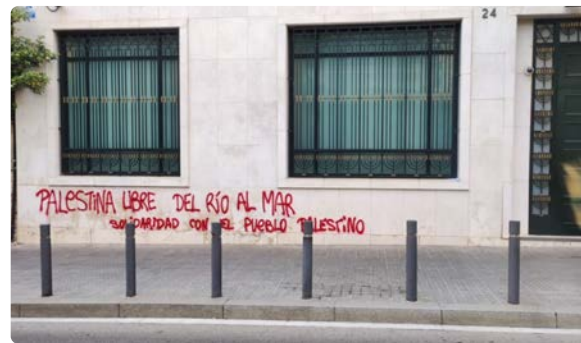 24
PALESTINA LIBRE DEL RÍO AL MAR
SOLIDARIDAD CON EL PUEBLO PALESTINO